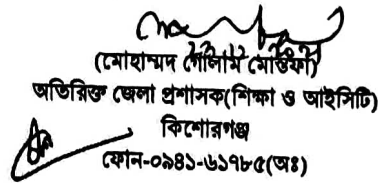 (মোহাম্মদ গোলাম মোস্তফা)
অতিরিক্ত জেলা প্রশাসক(শিক্ষা ও আইসিটি)
কিশোরগঞ্জ
ফোন-০৯৪১-৬১৭৮৫(অঃ)